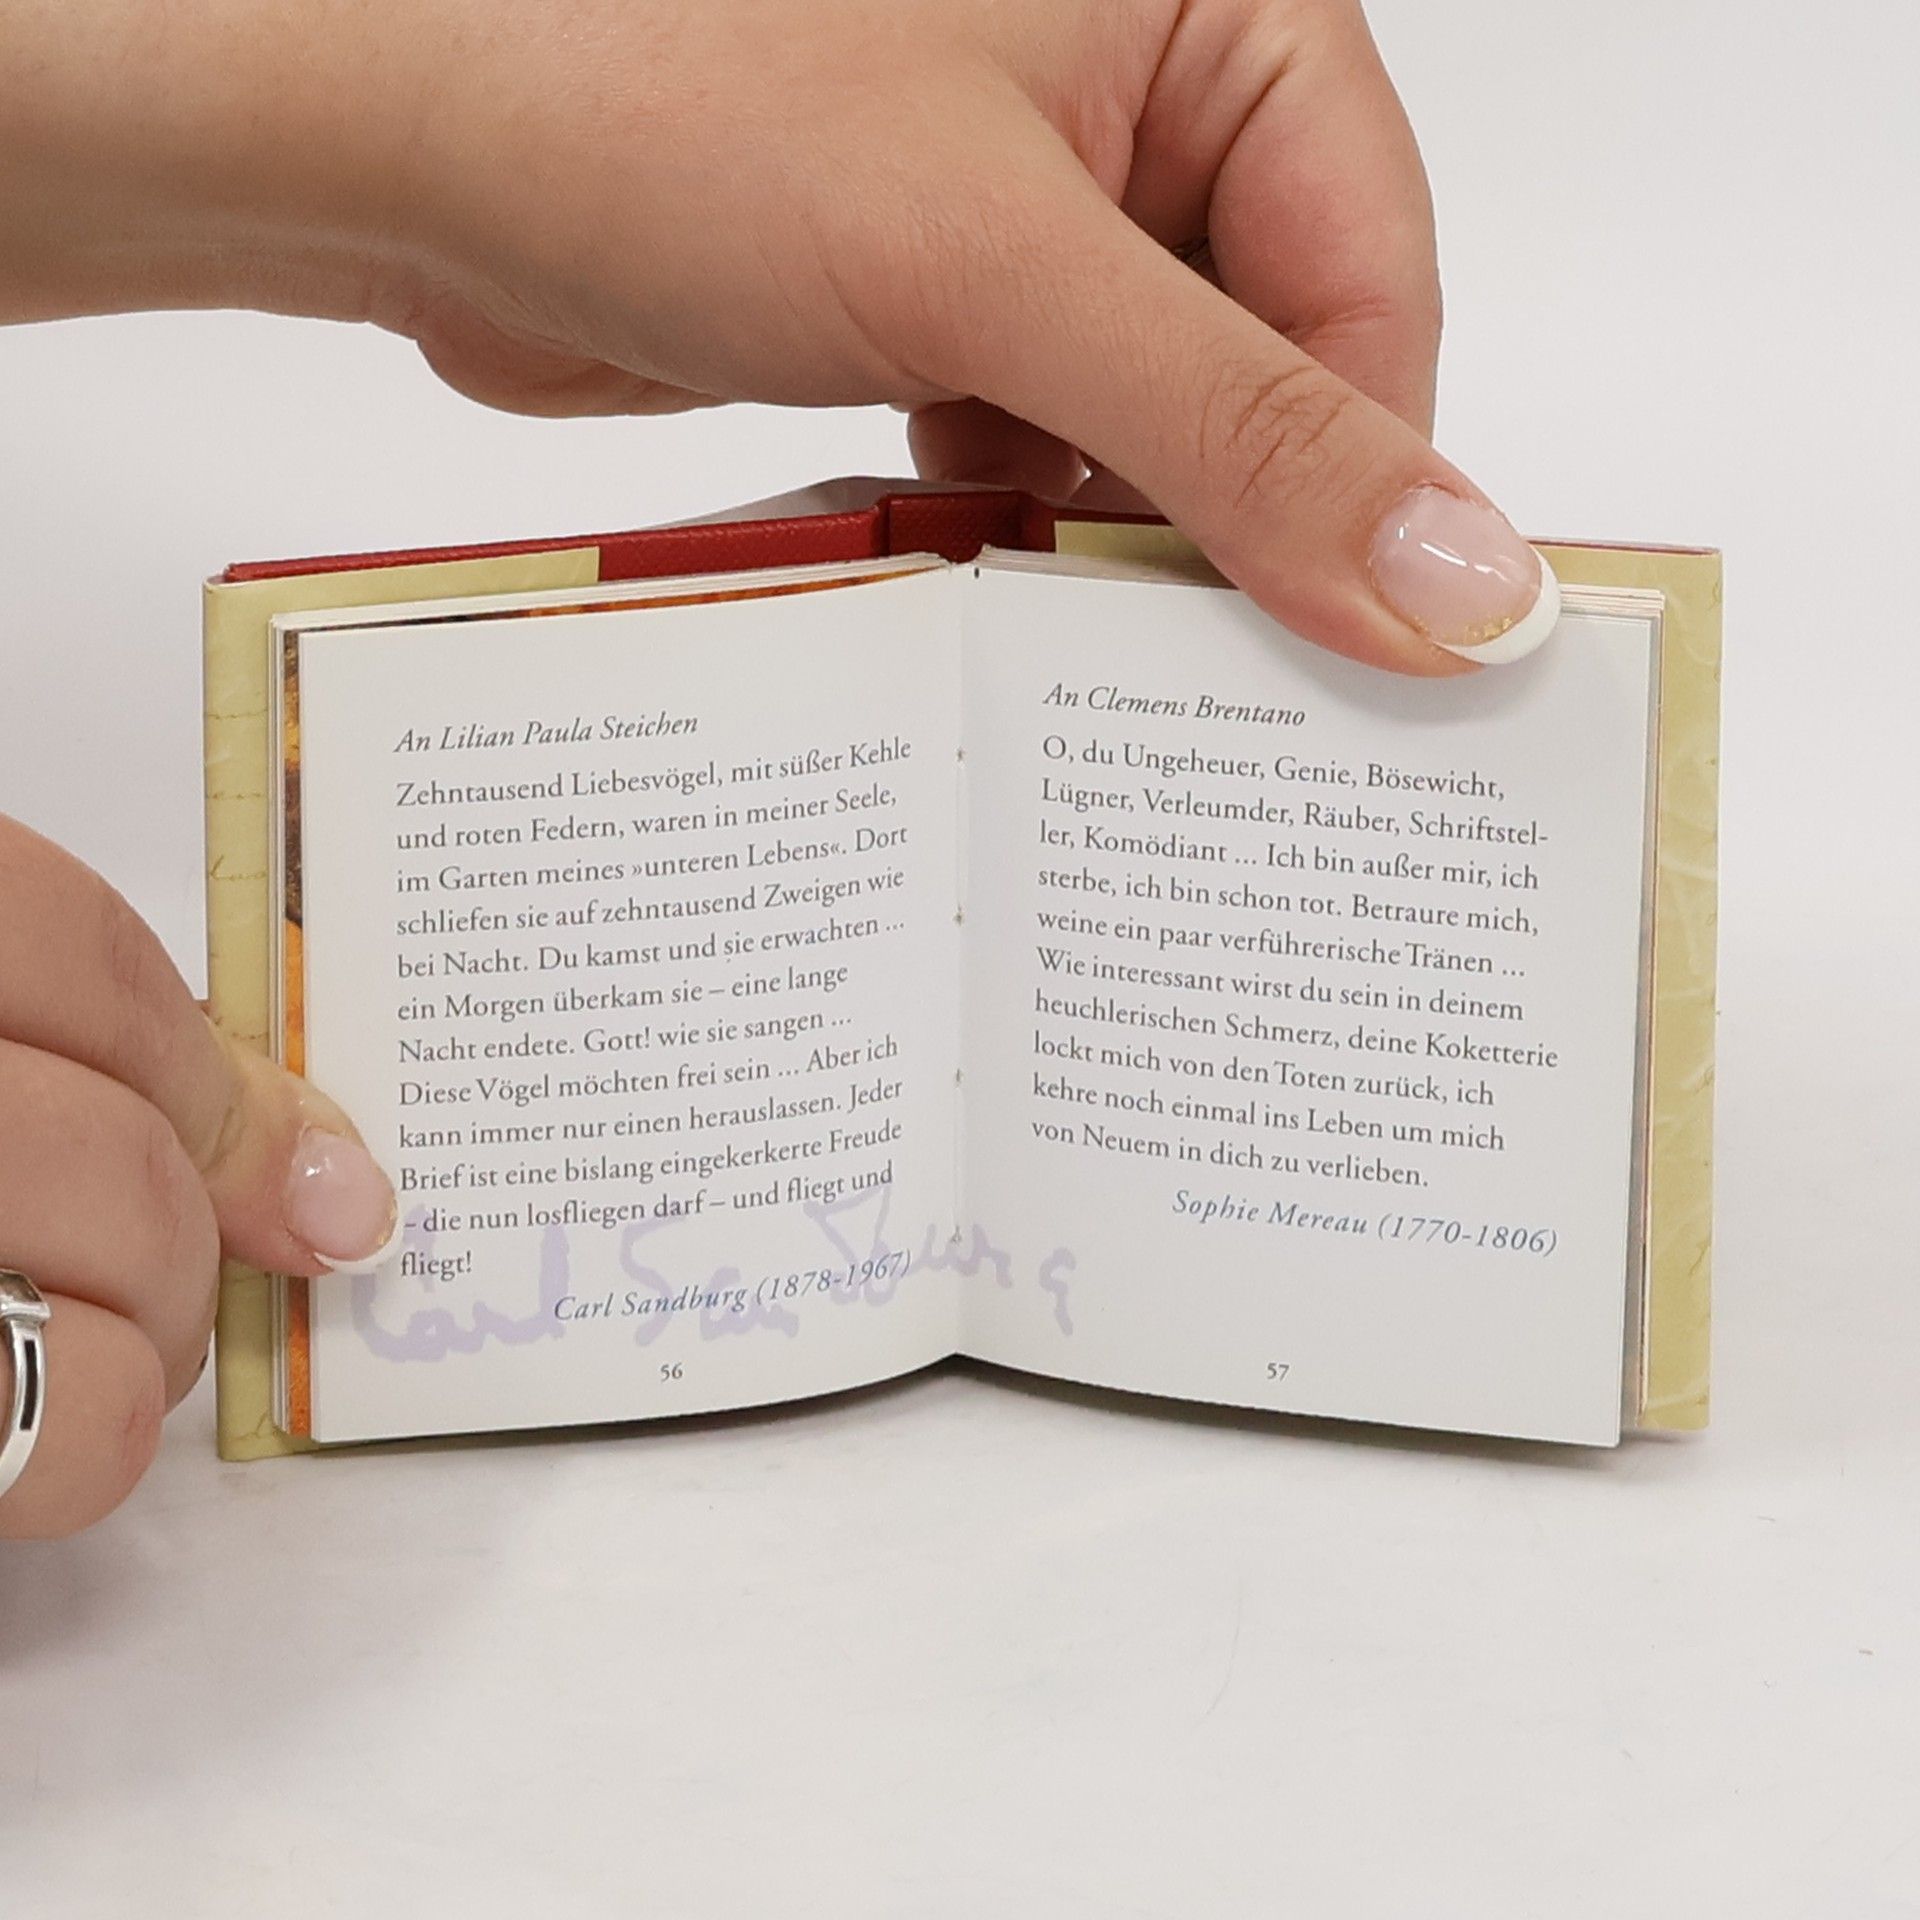 An Lilian Paula Steichen
Zehntausend Liebesvögel, mit süßer Kehle
und roten Federn, waren in meiner Seele,
im Garten meines »unteren Lebens«. Dort
schliefen sie auf zehntausend Zweigen wie
bei Nacht. Du kamst und sie erwachten ...
ein Morgen überkam sie – eine lange
Nacht endete. Gott! wie sie sangen ...
Diese Vögel möchten frei sein ... Aber ich
kann immer nur einen herauslassen. Jeder
Brief ist eine bislang eingekerkerte Freude
– die nun losfliegen darf – und fliegt und
fliegt!
Carl Sandburg (1878-1967)
Carl Sandburg
56
An Clemens Brentano
O, du Ungeheuer, Genie, Bösewicht,
Lügner, Verleumder, Räuber, Schriftstel-
ler, Komödiant ... Ich bin außer mir, ich
sterbe, ich bin schon tot. Betraure mich,
weine ein paar verführerische Tränen ...
Wie interessant wirst du sein in deinem
heuchlerischen Schmerz, deine Koketterie
lockt mich von den Toten zurück, ich
kehre noch einmal ins Leben um mich
von Neuem in dich zu verlieben.
Sophie Mereau (1770-1806)
57